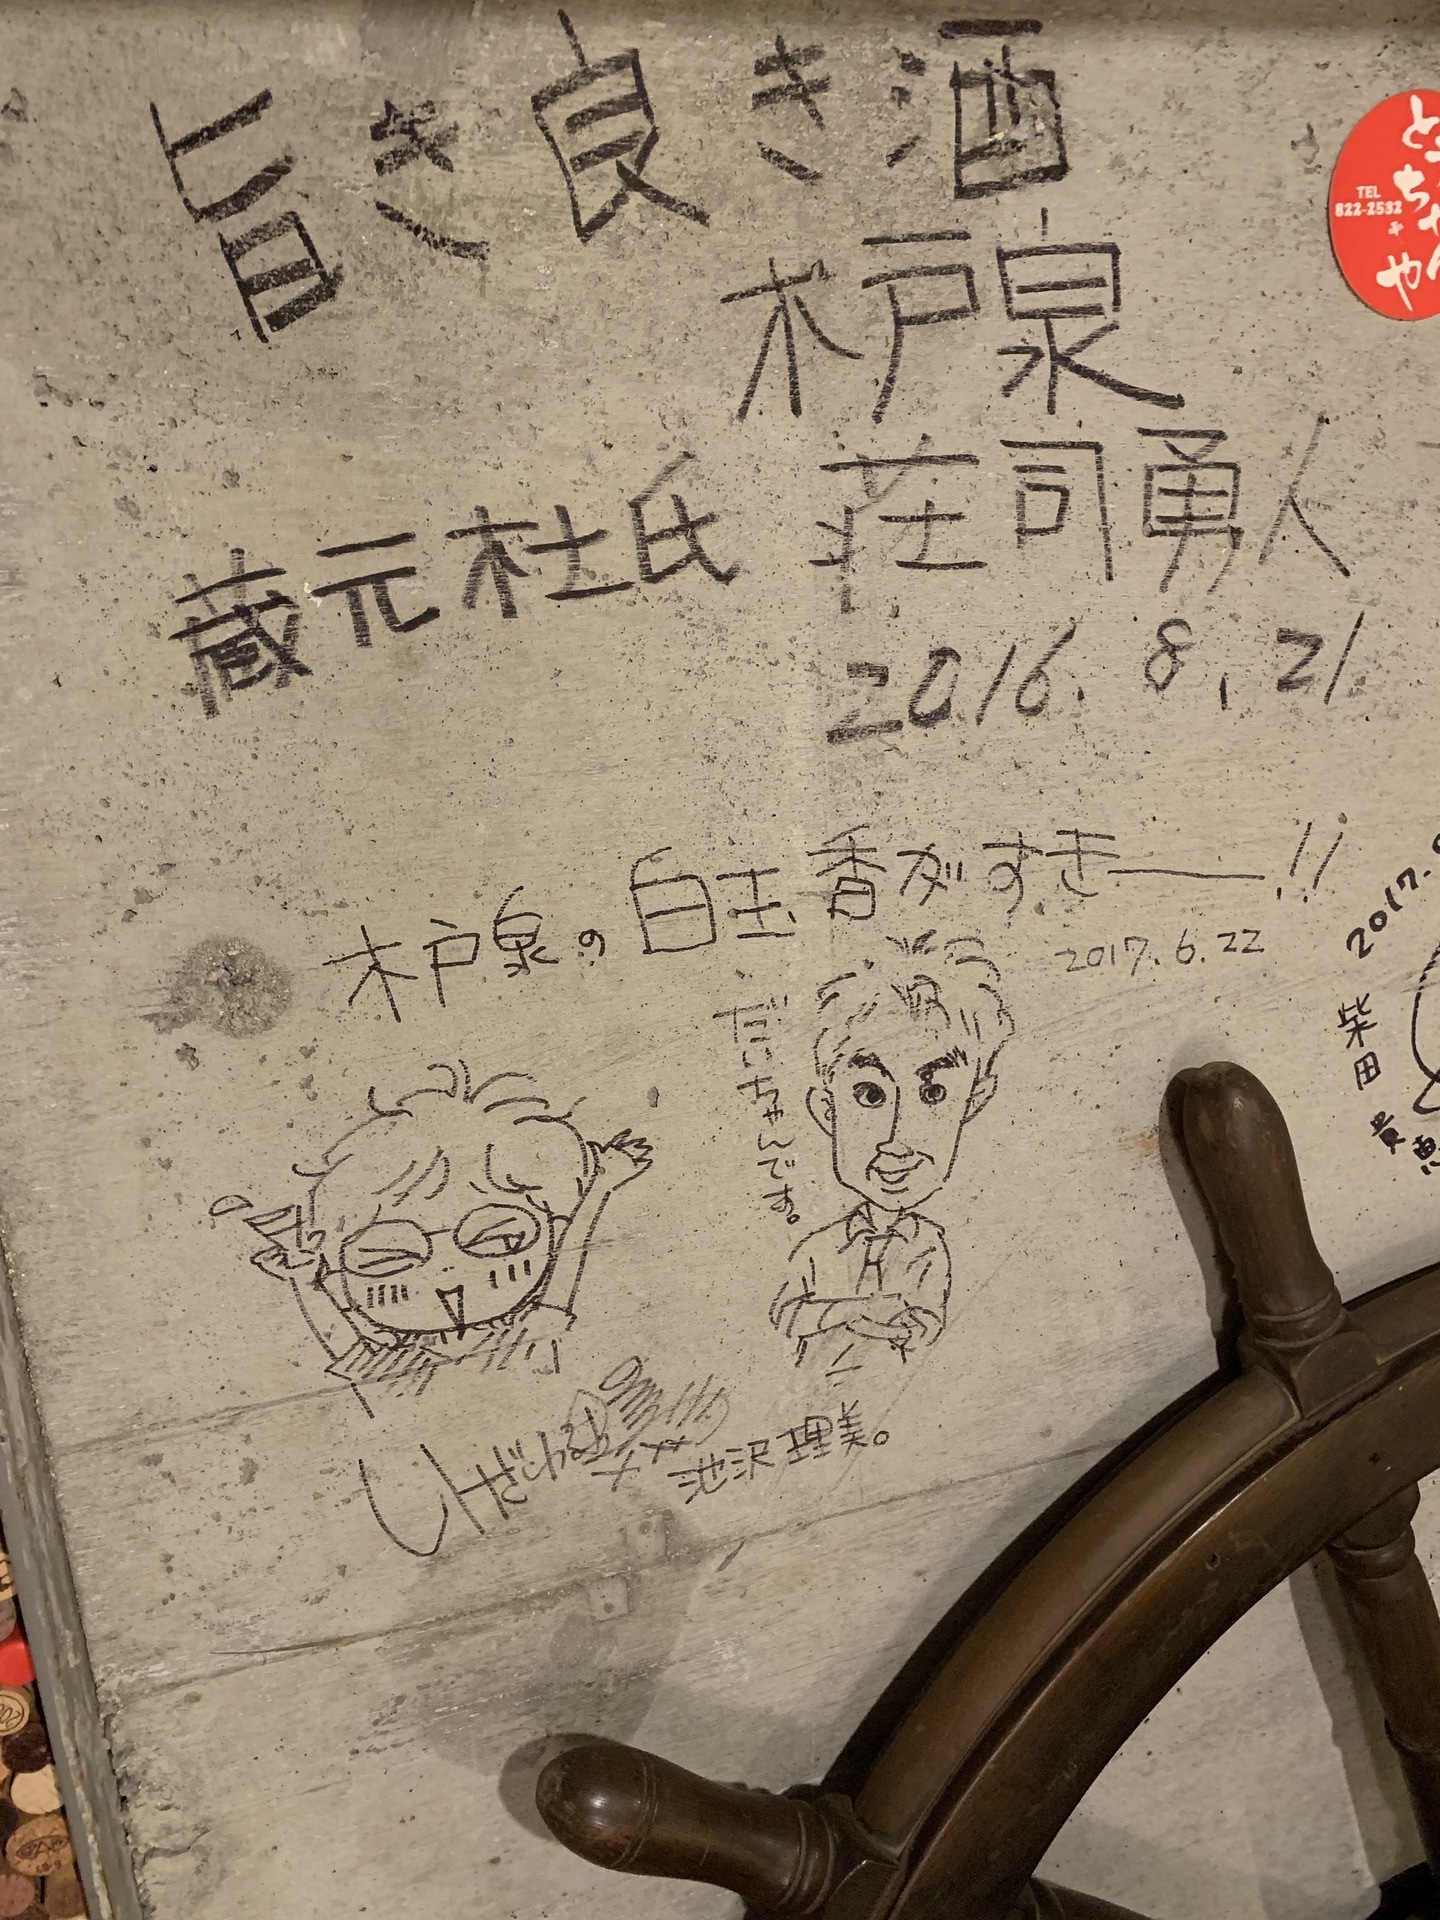 旨き良き酒
木戸泉
蔵元杜氏 荘司勇人
2016.8.21
とうちゃんや
TEL
822-2532
木戸泉の白玉香がすきー!!
2017.6.22
だいちゃんです。
池沢理美。
2017.
柴田
貴恵